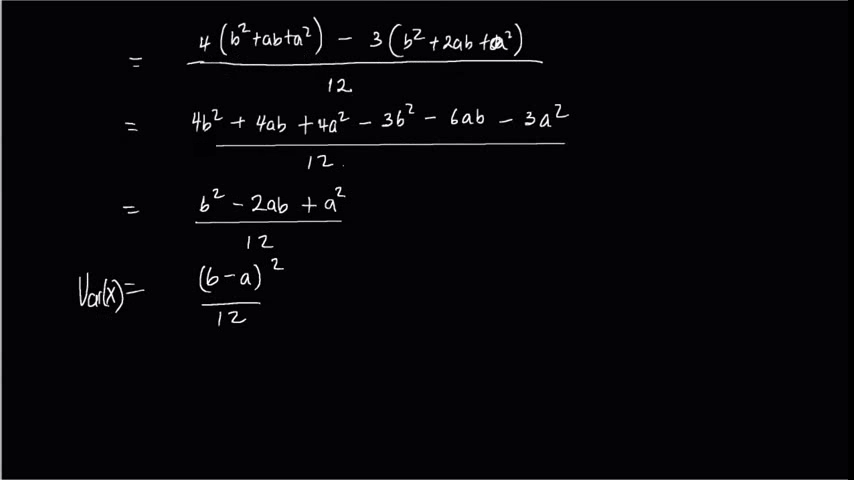 = 4(b²+ab+a²) − 3(b²+2ab+a²) / 12
= 4b² + 4ab + 4a² − 3b² − 6ab − 3a² / 12.
= b² − 2ab + a² / 12
Var(x)= (b−a)² / 12